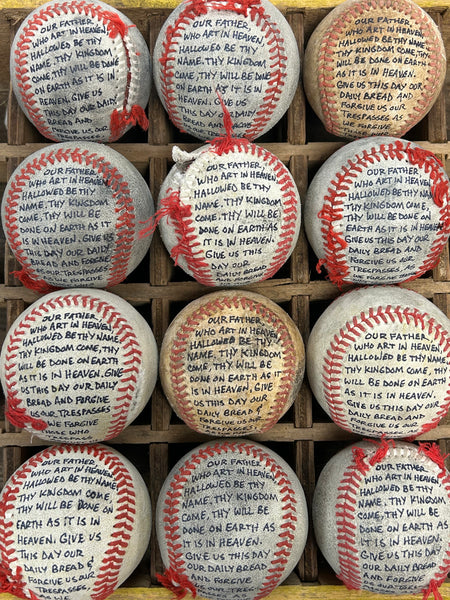 OUR FATHER,
WHO ART IN HEAVEN,
HALLOWED BE THY
NAME, THY KINGDOM
COME, THY WILL BE DONE
ON EARTH AS IT IS IN
HEAVEN. GIVE US
THIS DAY OUR DAILY
BREAD AND
FORGIVE US OUR
OUR FATHER,
WHO ART IN HEAVEN,
HALLOWED BE THY
NAME, THY KINGDOM
COME, THY WILL BE DONE
ON EARTH AS IT IS IN
HEAVEN. GIVE US
THIS DAY OUR DAILY
BREAD AND FORGIVE
US OUR TRESPASSES
OUR FATHER,
WHO ART IN HEAVEN,
HALLOWED BE THY NAME,
THY KINGDOM COME, THY
WILL BE DONE ON EARTH
AS IT IS IN HEAVEN.
GIVE US THIS DAY OUR
DAILY BREAD AND
FORGIVE US OUR
TRESPASSES AS WE
FORGIVE THOSE
OUR FATHER,
WHO ART IN HEAVEN,
HALLOWED BE THY
NAME, THY KINGDOM
COME, THY WILL BE DONE
ON EARTH AS IT IS
IN HEAVEN. GIVE US
THIS DAY OUR DAILY
BREAD AND FORGIVE
US OUR TRESPASSES
AS WE FORGIVE
OUR FATHER,
WHO ART IN HEAVEN,
HALLOWED BE THY
NAME, THY KINGDOM
COME, THY WILL BE
DONE ON EARTH AS
IT IS IN HEAVEN.
GIVE US THIS
DAY OUR
DAILY BREAD
OUR FATHER,
WHO ART IN HEAVEN,
HALLOWED BE THY
NAME, THY KINGDOM COME,
THY WILL BE DONE ON
EARTH AS IT IS IN HEAVEN.
GIVE US THIS DAY OUR
DAILY BREAD AND
FORGIVE US OUR
TRESPASSES, AS
WE FORGIVE
OUR FATHER,
WHO ART IN HEAVEN,
HALLOWED BE THY NAME,
THY KINGDOM COME, THY
WILL BE DONE ON EARTH
AS IT IS IN HEAVEN. GIVE
US THIS DAY OUR DAILY
BREAD AND FORGIVE
US OUR TRESPASSES
WE FORGIVE
THOSE WHO
OUR FATHER,
WHO ART IN HEAVEN,
HALLOWED BE THY
NAME, THY KINGDOM
COME, THY WILL BE DONE
ON EARTH AS IT IS IN
HEAVEN. GIVE US THIS DAY OUR
DAILY BREAD &
FORGIVE US OUR
TRESPASSES
OUR FATHER,
WHO ART IN HEAVEN,
HALLOWED BE THY NAME,
THY KINGDOM COME, THY
WILL BE DONE ON EARTH
AS IT IS IN HEAVEN.
GIVE US THIS DAY OUR
DAILY BREAD AND
FORGIVE US OUR
OUR FATHER,
WHO ART IN HEAVEN,
HALLOWED BE THY NAME,
THY KINGDOM COME,
THY WILL BE DONE ON
EARTH AS IT IS IN
HEAVEN. GIVE US
THIS DAY OUR
DAILY BREAD &
FORGIVE US OUR
TRESPASSES
AS WE
OUR FATHER,
WHO ART IN HEAVEN,
HALLOWED BE THY
NAME, THY KINGDOM
COME, THY WILL BE
DONE, ON EARTH AS
IT IS IN HEAVEN.
GIVE US THIS DAY
OUR DAILY BREAD
AND FORGIVE
US OUR
OUR FATHER,
WHO ART IN HEAVEN,
HALLOWED BE THY
NAME, THY KINGDOM
COME, THY WILL BE
DONE ON EARTH AS
IT IS IN HEAVEN.
GIVE US THIS DAY
OUR DAILY BREAD
AND FORGIVE US
OUR TRESPASSES